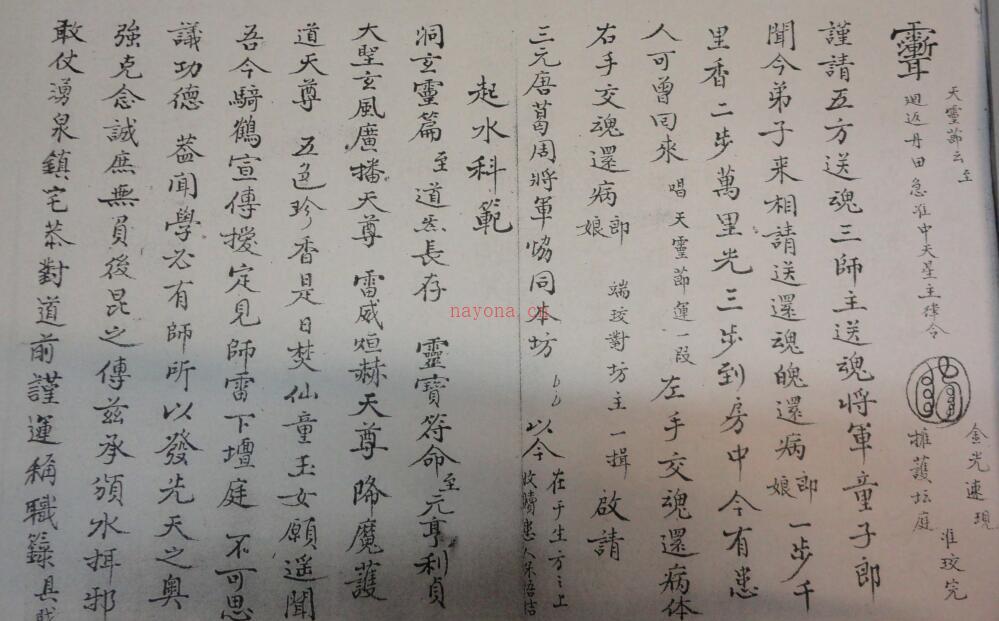 天靈節云至
迴返丹田急准中天星主律令
金光速現
擁護坛庭
准珓完
謹請五方送魂三師主送魂將軍童子郎
聞今弟子来相請送還魂魄還病郎娘 一步千
里香二步萬里光三步到房中今有患
人可曾回來 唱天靈節運一段 左手交魂還病体
右手交魂還病郎娘 端珓對坊主一揖 啟請
三元唐葛周將軍恊同本坊 以今 在于生方之上
起水科範
洞玄靈篇至道炁長存 靈寶符命至元亨利貞
大聖玄風廣播天尊 雷威烜赫天尊 降魔護
道天尊 五色珍香是日焚仙童玉女願遥聞
吾今騎鶴宣傳擾定見師雷下壇庭 不可思
議功德 葢聞學必有師所以發先天之奥
強克念誠庶無負後昆之傳兹承頒水捐邪
敢仗湧泉鎮宅恭對道前謹運稱職籙具
nayona.cn